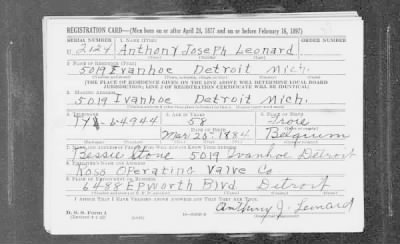 REGISTRATION CARD—(Men born on or after April 28, 1877 and on or before February 16, 1897)
SERIAL NUMBER 1. NAME (Print) ORDER NUMBER
U 2124 Anthony Joseph Leonard
(First) (Middle) (Last)
2. PLACE OF RESIDENCE (Print)
5019 Ivanhoe Detroit Mich.
(Number and street) (Town, township, village, or city) (County) (State)
[THE PLACE OF RESIDENCE GIVEN ON THE LINE ABOVE WILL DETERMINE LOCAL BOARD
JURISDICTION; LINE 2 OF REGISTRATION CERTIFICATE WILL BE IDENTICAL]
3. MAILING ADDRESS
5019 Ivanhoe Detroit Mich.
4. TELEPHONE 5. AGE IN YEARS 6. PLACE OF BIRTH
64944 58
DATE OF BIRTH
Mar 20 1884 Belgium
7. NAME AND ADDRESS OF PERSON WHO WILL ALWAYS KNOW YOUR ADDRESS
Bessie Stone 5019 Ivanhoe Detroit
8. EMPLOYER'S NAME AND ADDRESS
Ross Operating Valve Co
9. PLACE OF EMPLOYMENT OR BUSINESS
6488 Epworth Blvd. Detroit
I AFFIRM THAT I HAVE VERIFIED ABOVE ANSWERS AND THAT THEY ARE TRUE.
D. S. S. Form 1
Anthony J. Leonard